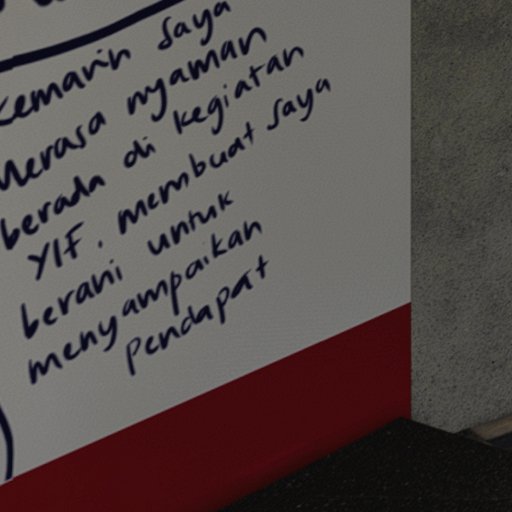 Kemarin saya
Merasa nyaman
berada di kegiatan
YIF. membuat saya
berani untuk
menyampaikan
Pendapat